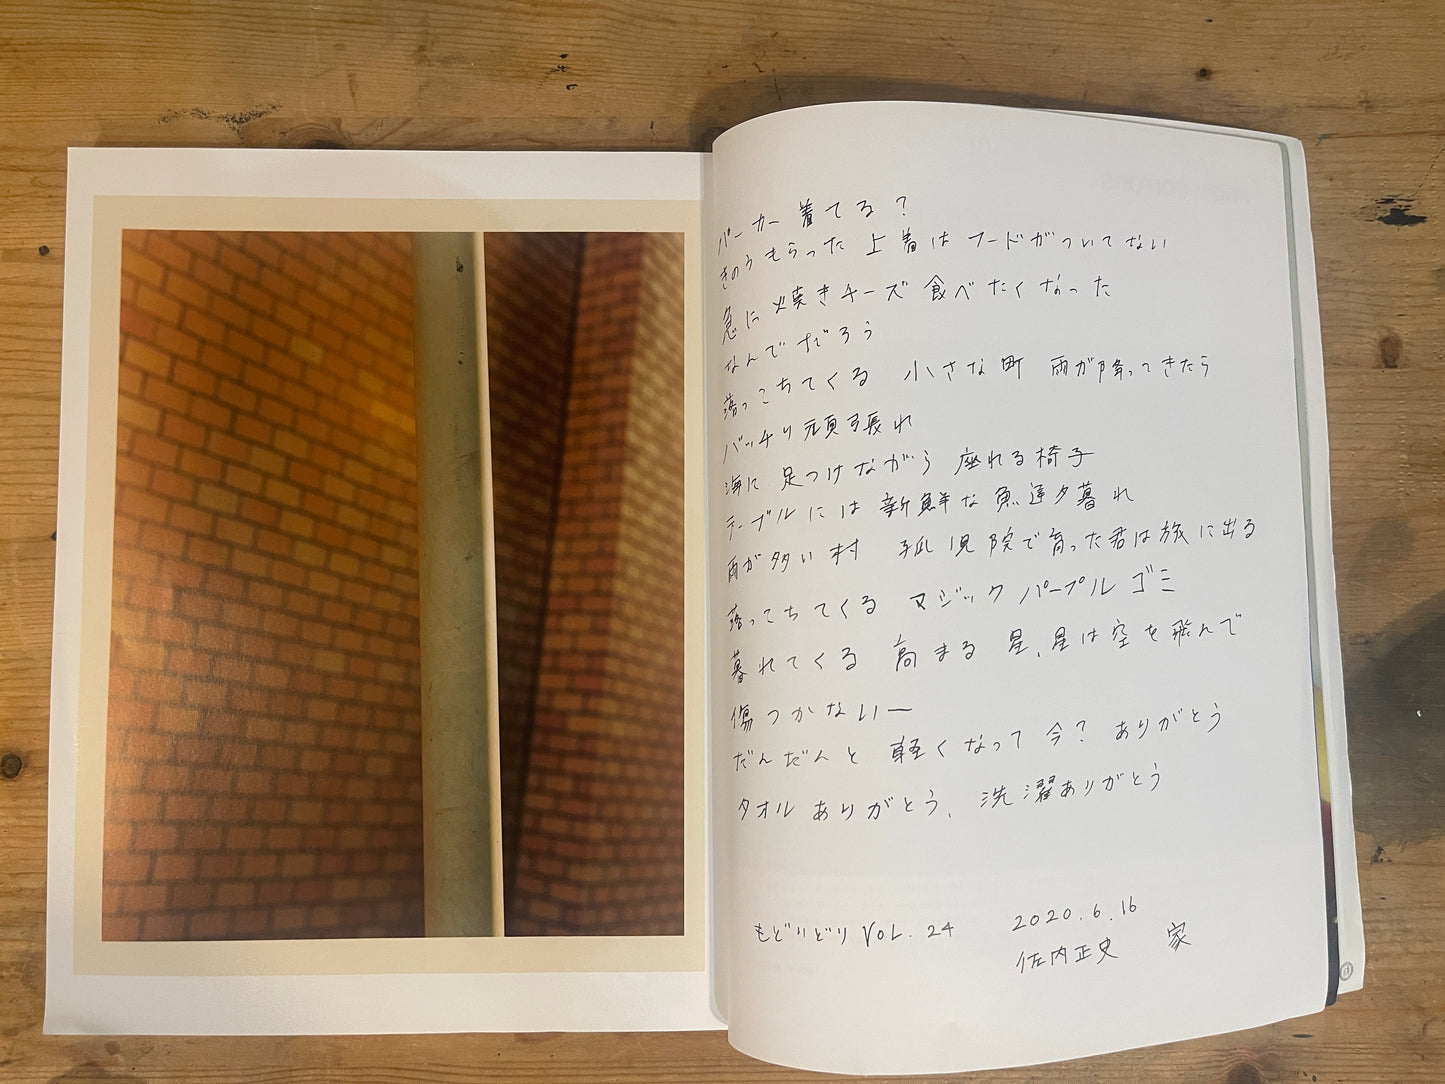 パーカー着てる？
きのうもらった 上着はフードがついてない
急に焼きチーズ食べたくなった
なんでだろう
落っこちてくる 小さな町 雨が降ってきたら
バッチリ頑張れ
海に足つけながら 座れる椅子
テーブルには新鮮な魚達夕暮れ
雨が多い村 孤児院で育った君は旅に出る
落ってちてくる マジックパープルゴミ
暮れてくる 高まる 星、星は空を飛んで
傷つかないー
だんだんと 軽くなって 今？ ありがとう
タオル ありがとう、洗濯ありがとう
もどりどり VOL.24 2020.6.16
佐内正史 家